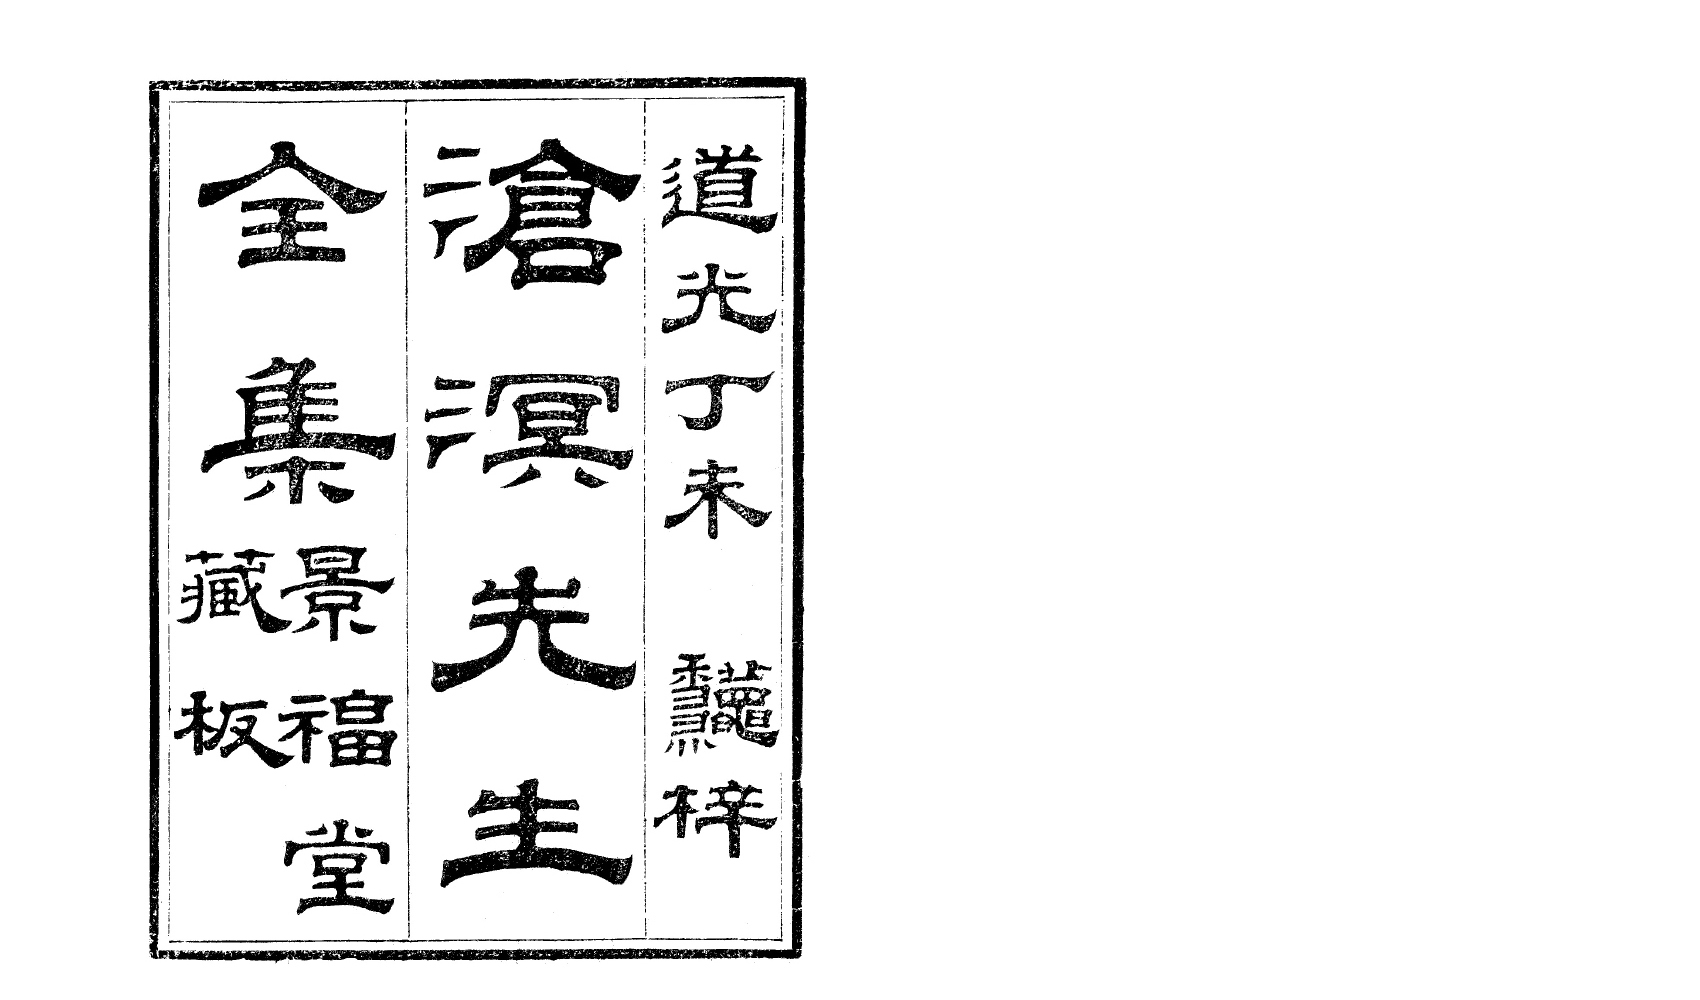 道光丁未　龝梓
滄溟先生
全集
景福堂
藏板